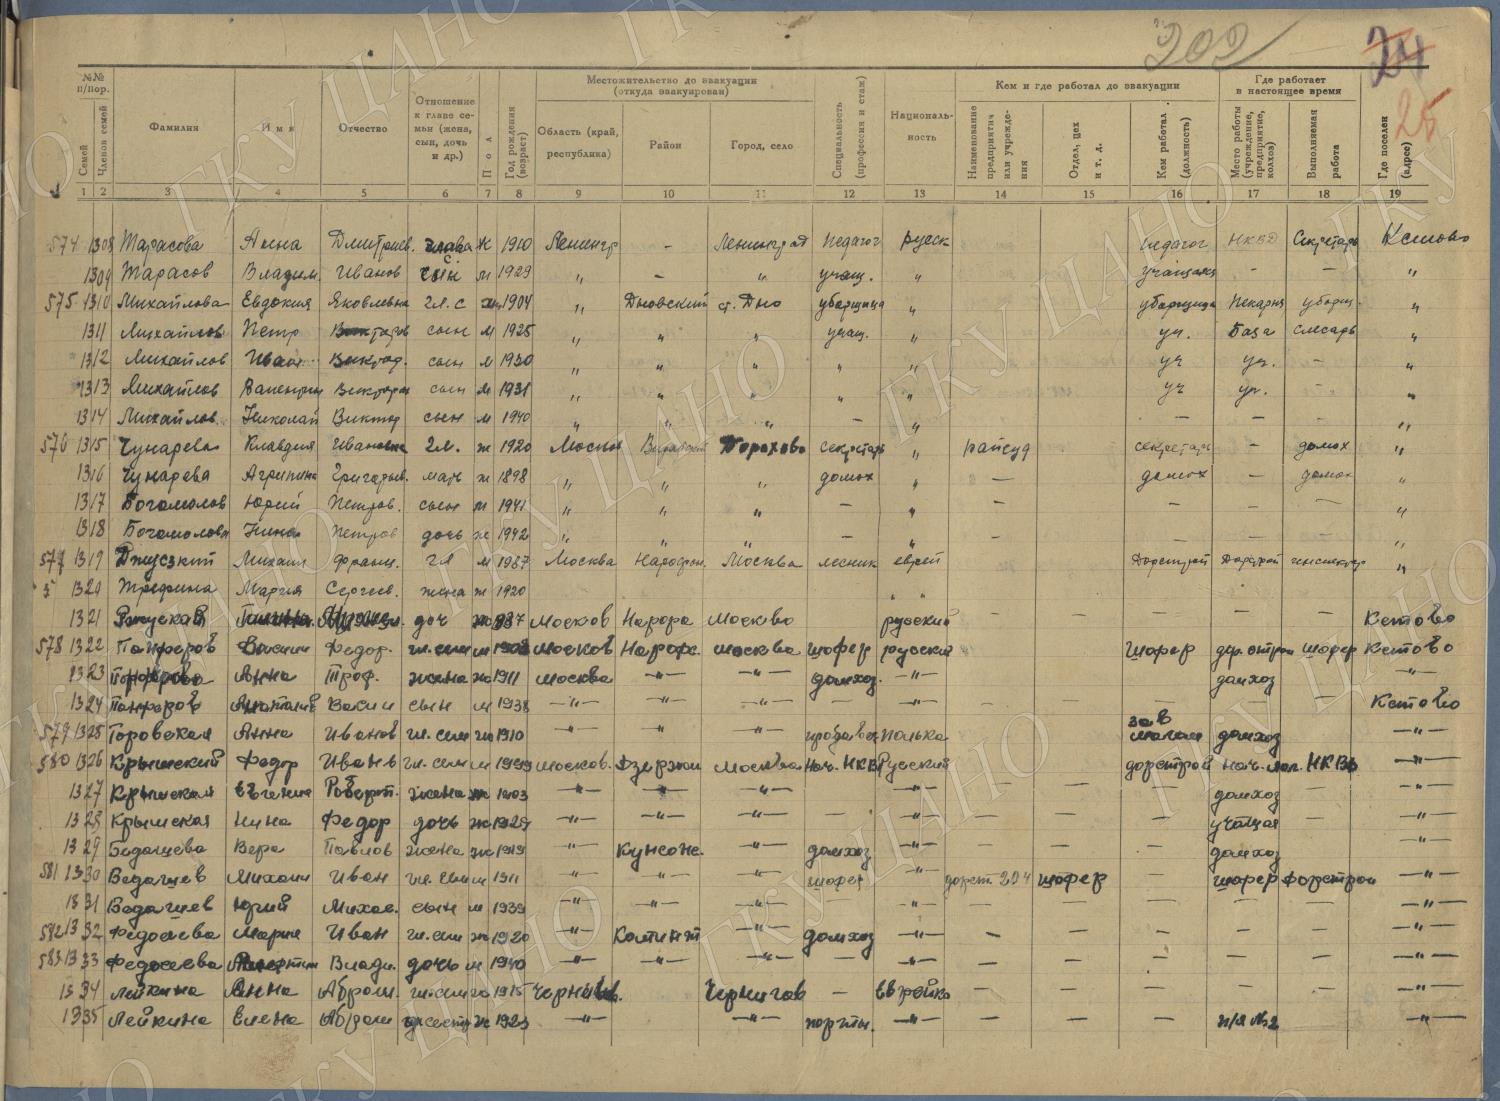 202
24
25
№№ п/пор.
Семей
Членов семей
Фамилия
Имя
Отчество
Отношение к главе семьи (жена, сын, дочь и др.)
Пол
Год рождения (возраст)
Местожительство до эвакуации (откуда эвакуирован)
Область (край, республика)
Район
Город, село
Специальность (профессия и стаж)
Националь-ность
Кем и где работал до эвакуации
Наименование предприятия или учреждения
Отдел, цех и т. д.
Кем работал (должность)
Где работает в настоящее время
Место работы (учреждение, предприятие, колхоз)
Выполняемая работа
Где поселен (адрес)
1 2 3 4 5 6 7 8 9 10 11 12 13 14 15 16 17 18 19
574 1308 Тарасова Анна Дмитриев. глава ж 1910 Ленингр – Ленинград педагог русск педагог НКВД Секретарь Кстово
1309 Тарасов Владим. Иванов сын м 1929 " – " учащ. " учащийся – – "
575 1310 Михайлова Евдокия Яковлевна гл. с ж 1904 " Дновский ст. Дно уборщица " уборщица Пекарня уборщ. "
1311 Михайлов Петр Викторов сын м 1925 " " " учащ. " уч. База слесарь "
1312 Михайлов Иван Виктор. сын м 1930 " " " " уч уч. – "
1313 Михайлов Валентин Викторов сын м 1931 " " " " уч уч. - "
1314 Михайлов Николай Виктор сын м 1940 " " " – " – – – "
576 1315 Чукарева Клавдия Ивановна гл. ж 1920 Москов Горохово секретарь " райсуд секретарь – домох "
1316 Чукарева Агрипина Григорьев. мать ж 1898 " " " домох " – домох – домох "
1317 Богомолов Юрий Петров. сын м 1941 " " " – " – – – "
1318 Богомолова Нина Петров дочь ж 1942 " " " – " – – "
577 1319 Михаил Франц. гл м Москва Нарофом. Москва лесник еврей Дорстрой Дорстрой инспектор "
1320 Мария Сергеев. жена ж 1920 " "
1321 доч ж 1937 Москов Нарофо Москва русский – – – – Кстово
578 1322 Панферов Василий Федор. гл. сем м Москов Нарофо. Москва шофер русский – шофер дор. строй шофер Кстово
1323 Панферова Анна Троф. жена ж 1911 Москва –"– –"– домхоз. –"– домхоз –"–
1324 Панферов Анатолий Васил сын м 1938 –"– –"– –"– – –"– – – – – – Кстово
579 1325 Горовская Анна Иванов гл. сем ж 1910 –"– " –"– продавец полька зав магаз домхоз –"–
580 1326 Крымский Федор Иванв гл. сем м Москов. Дзержин Москва Нач. НКВД Русский дорстров нач. НКВД –"–
1327 Крымская Евгения Роберт. жена ж 1903 –"– –"– –"– – – домхоз –"–
1328 Крымская Нина Федор дочь ж 1929 –"– –"– –"– – –"– – – – учащая –"–
1329 Ведащева Вера Павлов жена ж 1919 –"– домхоз –"– – – – домхоз –"–
581 1330 Ведащев Михаил Иван гл. сем м 1911 –"– –"– –"– шофер –"– дорст. 204 шофер – шофер дорстрои –"–
1331 Ведащев Юрий Михаи. сын м 1939 –"– –"– –"– – –"– – – – – – –"–
582 1332 Федосеева Мария Иван гл. сем ж 1920 –"– –"– домхоз –"– – – – – – –"–
583 1333 Федосеева Влади. дочь м 1940 –"– –"– –"– – –"– – – – – – –"–
1334 Лейкина Анна Абрам. гл. сем ж 1915 Чернигов. Чернигов – еврейка – – – – – –"–
1335 Лейкина Елена Абрам сестр ж 1923 –"– –"– портн. –"– – – – п/я №2 –"–
ГКУ ЦАНО